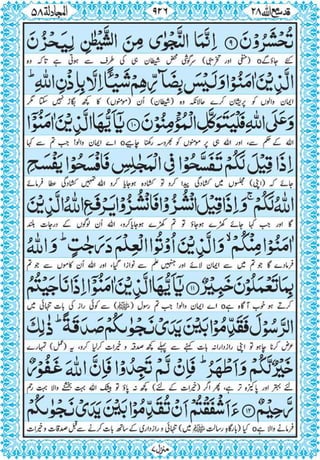 قد سمع الله ٢٨ ٩٢٦ المجادلة ٥٨
تُحْشَرُوْنَ ﴿۹﴾ اِنَّمَا النَّجْوٰى مِنَ الشَّيْطٰنِ لِيَحْزُنَ
کئے جاؤ گے o (منفی اور تخریبی) سرگوشی محض شیطان ہی کی طرف سے ہوتی ہے تاکہ وہ
الَّذِيْنَ اٰمَنُوْا وَلَيْسَ بِضَآرِّهِمْ شَيْئًا اِلَّا بِاِذْنِ اللّٰهِ ؕ
ایمان والوں کو پریشان کرے حالانکہ وہ (شیطان) اُن (مومنوں) کا کچھ بگاڑ نہیں سکتا مگر
وَعَلَى اللّٰهِ فَلْيَتَوَكَّلِ الْمُؤْمِنُوْنَ ﴿۱۰﴾ يٰۤاَيُّهَا الَّذِيْنَ اٰمَنُوْۤا
اللہ کے حکم سے، اور اللہ ہی پر مومنوں کو بھروسہ رکھنا چاہیے o اے ایمان والو! جب تم سے کہا
اِذَا قِيْلَ لَكُمْ تَفَسَّحُوْا فِى الْمَجٰلِسِ فَافْسَحُوْا يَفْسَحِ
جائے کہ (اپنی) مجلسوں میں کشادگی پیدا کرو تو کشادہ ہو جایا کرو اللہ تمہیں کشادگی عطا فرمائے
اللّٰهُ لَكُمْ ۚ وَاِذَا قِيْلَ انْشُزُوْا فَانْشُزُوْا يَرْفَعِ اللّٰهُ الَّذِيْنَ
گا اور جب کہا جائے کھڑے ہو جاؤ تو تم کھڑے ہو جایا کرو، اللہ اُن لوگوں کے درجات بلند
اٰمَنُوْا مِنْكُمْ ۙ وَالَّذِيْنَ اُوْتُوا الْعِلْمَ دَرَجٰتٍ ؕ وَاللّٰهُ
فرما دے گا جو تم میں سے ایمان لائے اور جنہیں علم سے نوازا گیا، اور اللہ اُن کاموں سے جو تم
بِمَا تَعْمَلُوْنَ خَبِيْرٌ ﴿۱۱﴾ يٰۤاَيُّهَا الَّذِيْنَ اٰمَنُوْۤا اِذَا نَاجَيْتُمُ
کرتے ہو خوب آگاہ ہے o اے ایمان والو! جب تم رسول (ﷺ) سے کوئی راز کی بات تنہائی میں
الرَّسُوْلَ فَقَدِّمُوْا بَيْنَ يَدَىْ نَجْوٰىكُمْ صَدَقَةً ؕ ذٰلِكَ
عرض کرنا چاہو تو اپنی رازدارانہ بات کہنے سے پہلے کچھ صدقہ و خیرات کر لیا کرو، یہ (عمل) تمہارے
خَيْرٌ لَّكُمْ وَاَطْهَرُ ؕ فَاِنْ لَّمْ تَجِدُوْا فَاِنَّ اللّٰهَ غَفُوْرٌ
لئے بہتر اور پاکیزہ تر ہے، پھر اگر (خیرات کے لئے) کچھ نہ پاؤ تو بیشک اللہ بہت بخشنے والا بہت رحم
رَّحِيْمٌ ﴿۱۲﴾ ءَاَشْفَقْتُمْ اَنْ تُقَدِّمُوْا بَيْنَ يَدَىْ نَجْوٰىكُمْ
فرمانے والا ہے o کیا (بارگاہِ رسالت ﷺ میں) تنہائی و رازداری کے ساتھ بات کرنے سے قبل صدقات و خیرات
منزل ۷